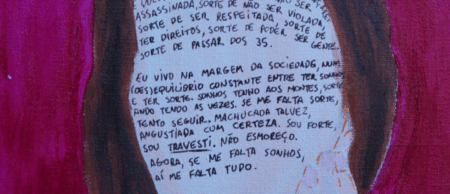 ASSASSINADA, SORTE DE NÃO SER VIOLADA,
SORTE DE SER RESPEITADA, SORTE DE
TER DIREITOS, SORTE DE PODER SER GENTE.
SORTE DE PASSAR DOS 35.
EU VIVO NA MARGEM DA SOCIEDADE, NUM
(DES)EQUILÍBRIO CONSTANTE ENTRE TER SONHOS
E TER SORTE. SONHOS TENHO AOS MONTES, SORTE
ANDO TENDO AS VEZES. SE ME FALTA SORTE,
TENTO SEGUIR. MACHUCADA TALVEZ,
ANGUSTIADA COM CERTEZA. SOU FORTE,
SOU TRAVESTI. NÃO ESMOREÇO.
AGORA, SE ME FALTA SONHOS,
AÍ ME FALTA TUDO.